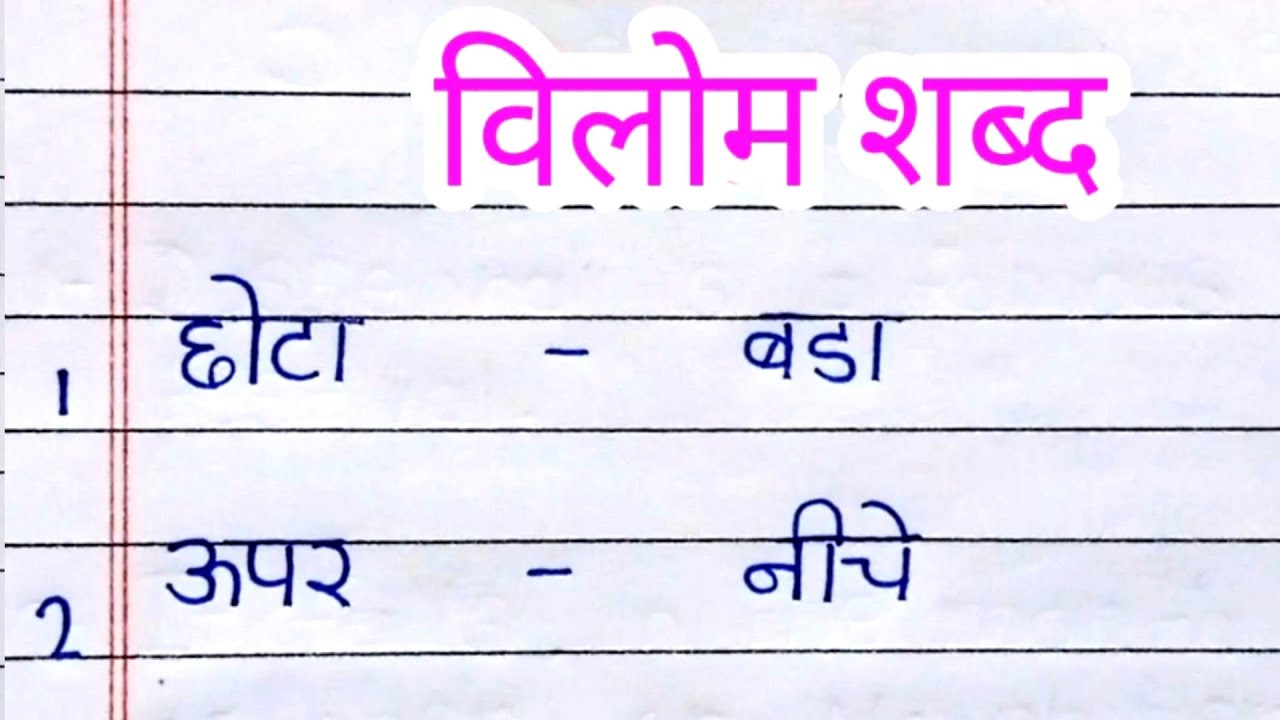 विलोम शब्द
1 छोटा - बडा
2 ऊपर - नीचे